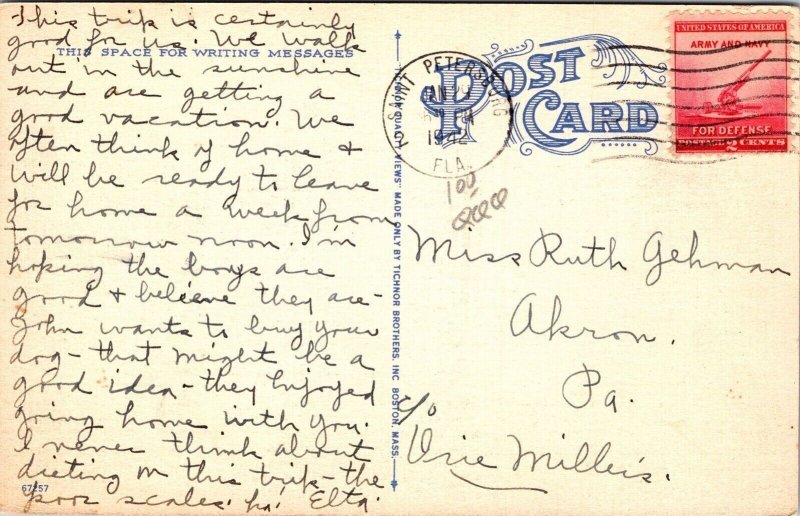 This trip is certainly
good for us. We walk
THIS SPACE FOR WRITING MESSAGES
out in the sunshine
and are getting a
good vacation. We
often think of home +
will be ready to leave
for home a week from
tomorrow noon. I'm
hoping the boys are
good + believe they are -
John wants to buy your
dog - that might be a
good idea - they enjoyed
going home with you.
I never think about
dieting on this trip - the
poor scales. ha! Elta.
67257
"TICHNOR QUALITY VIEWS" MADE ONLY BY TICHNOR BROTHERS, INC BOSTON, MASS.
POST
CARD
SAINT PETERSBURG
JAN
194
FLA.
UNITED STATES OF AMERICA
ARMY AND NAVY
FOR DEFENSE
POSTAGE 2 CENTS
1 00
Miss Ruth Gehman
Akron.
Pa.
c/o
Orie Miller's.